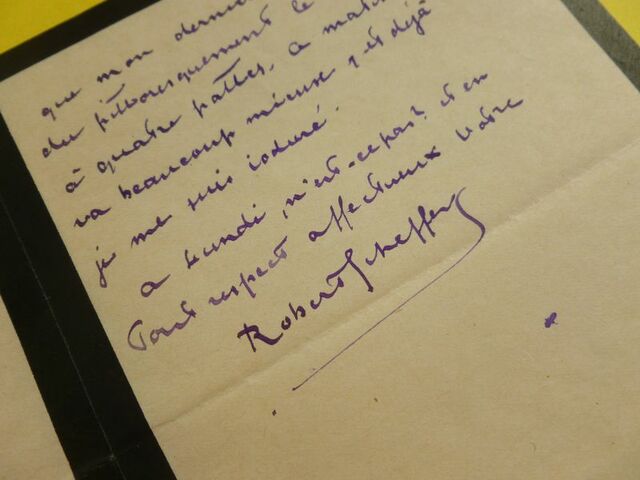 que mon dernie
du pittoresquement le
à quatre pattes. a mati
va beaucoup mieux, et déjà
je me suis ioduré.
a Lundi, n'est-ce pas? et en
tout respect affectueux Votre
Robert Scheffer